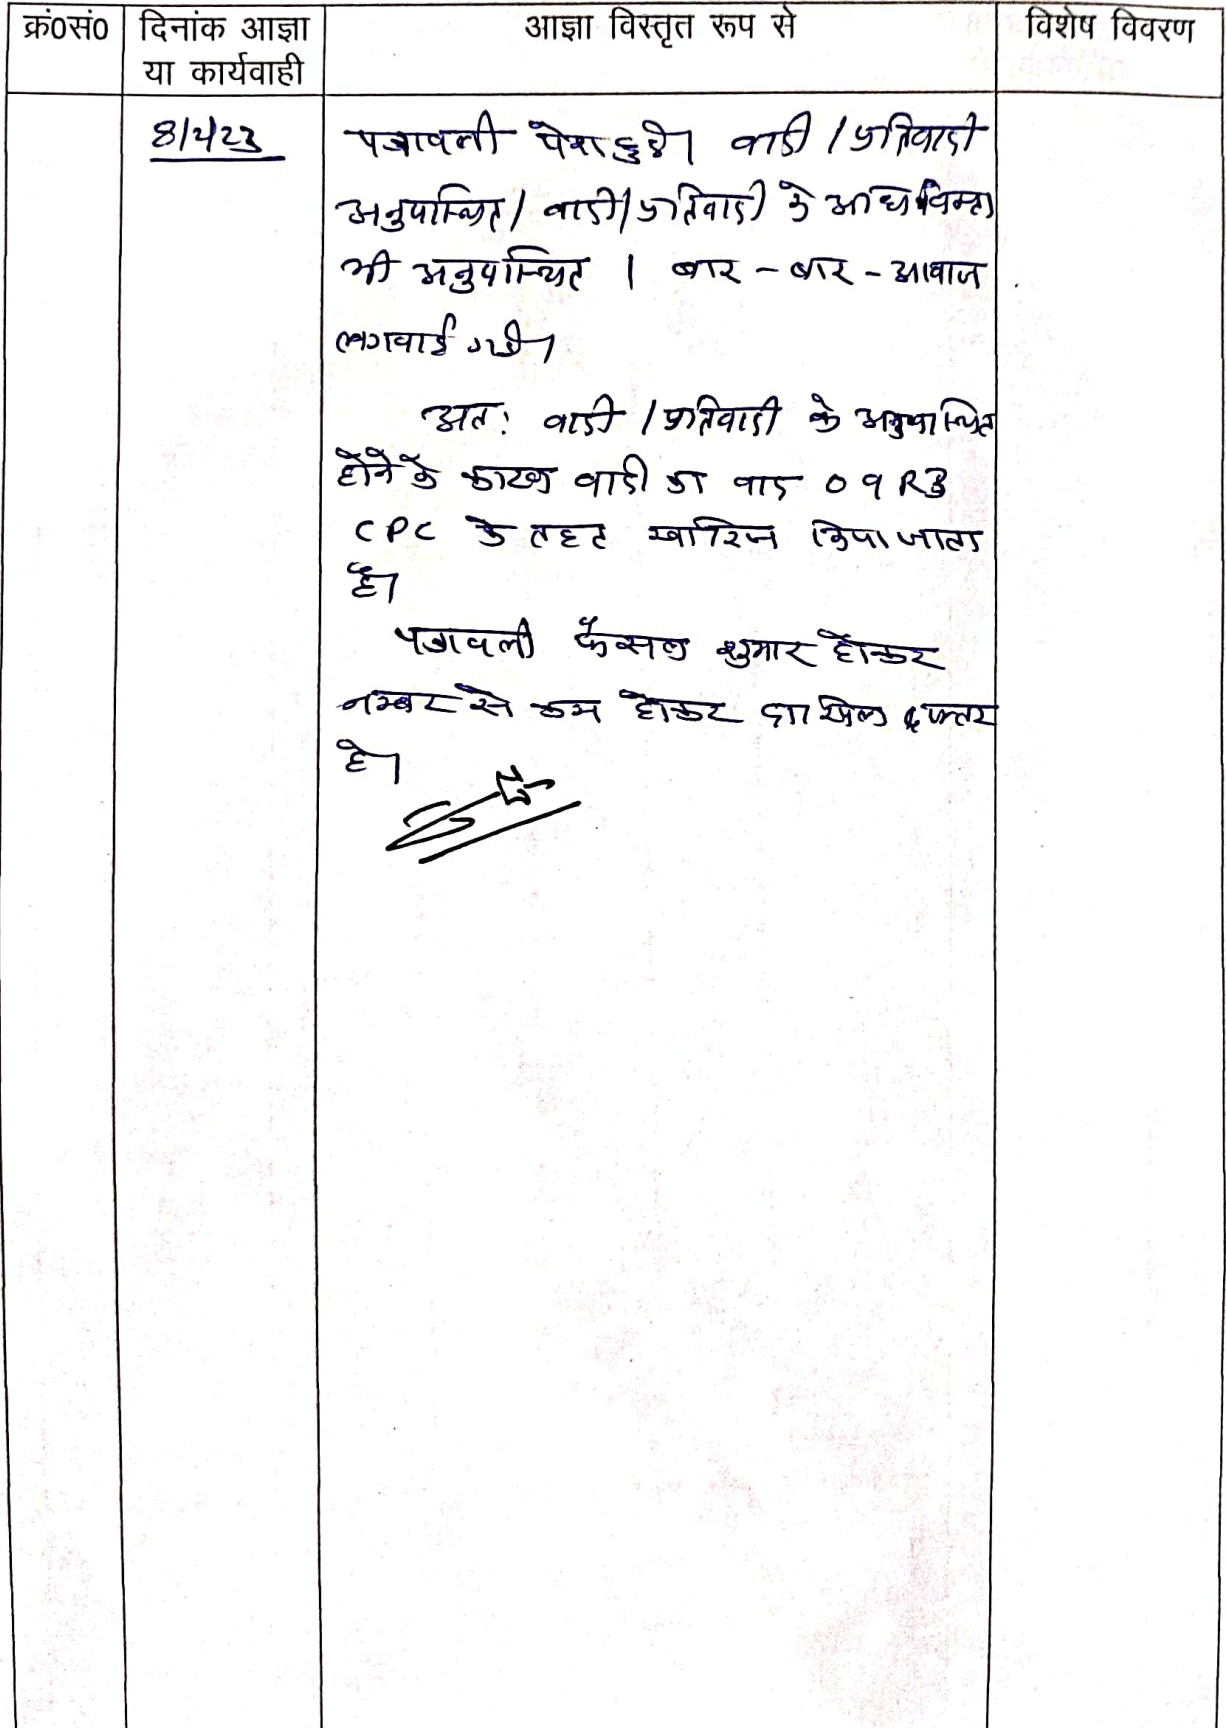 क्रं0सं0 दिनांक आज्ञा या कार्यवाही आज्ञा विस्तृत रूप से विशेष विवरण
8/2/23 पत्रावली पेश हुई। वादी / प्रतिवादी
अनुपस्थित / वादी/प्रतिवादी के अधिवक्ता
भी अनुपस्थित । बार - बार - आवाज
लगवाई गयी।
अतः वादी / प्रतिवादी के अनुपस्थित
होने के कारण वादी का वाद 09 R3
CPC के तहत खारिज किया जाता
है।
पत्रावली फैसल शुमार होकर
नम्बर से कम होकर दाखिल दफ्तर
हो।